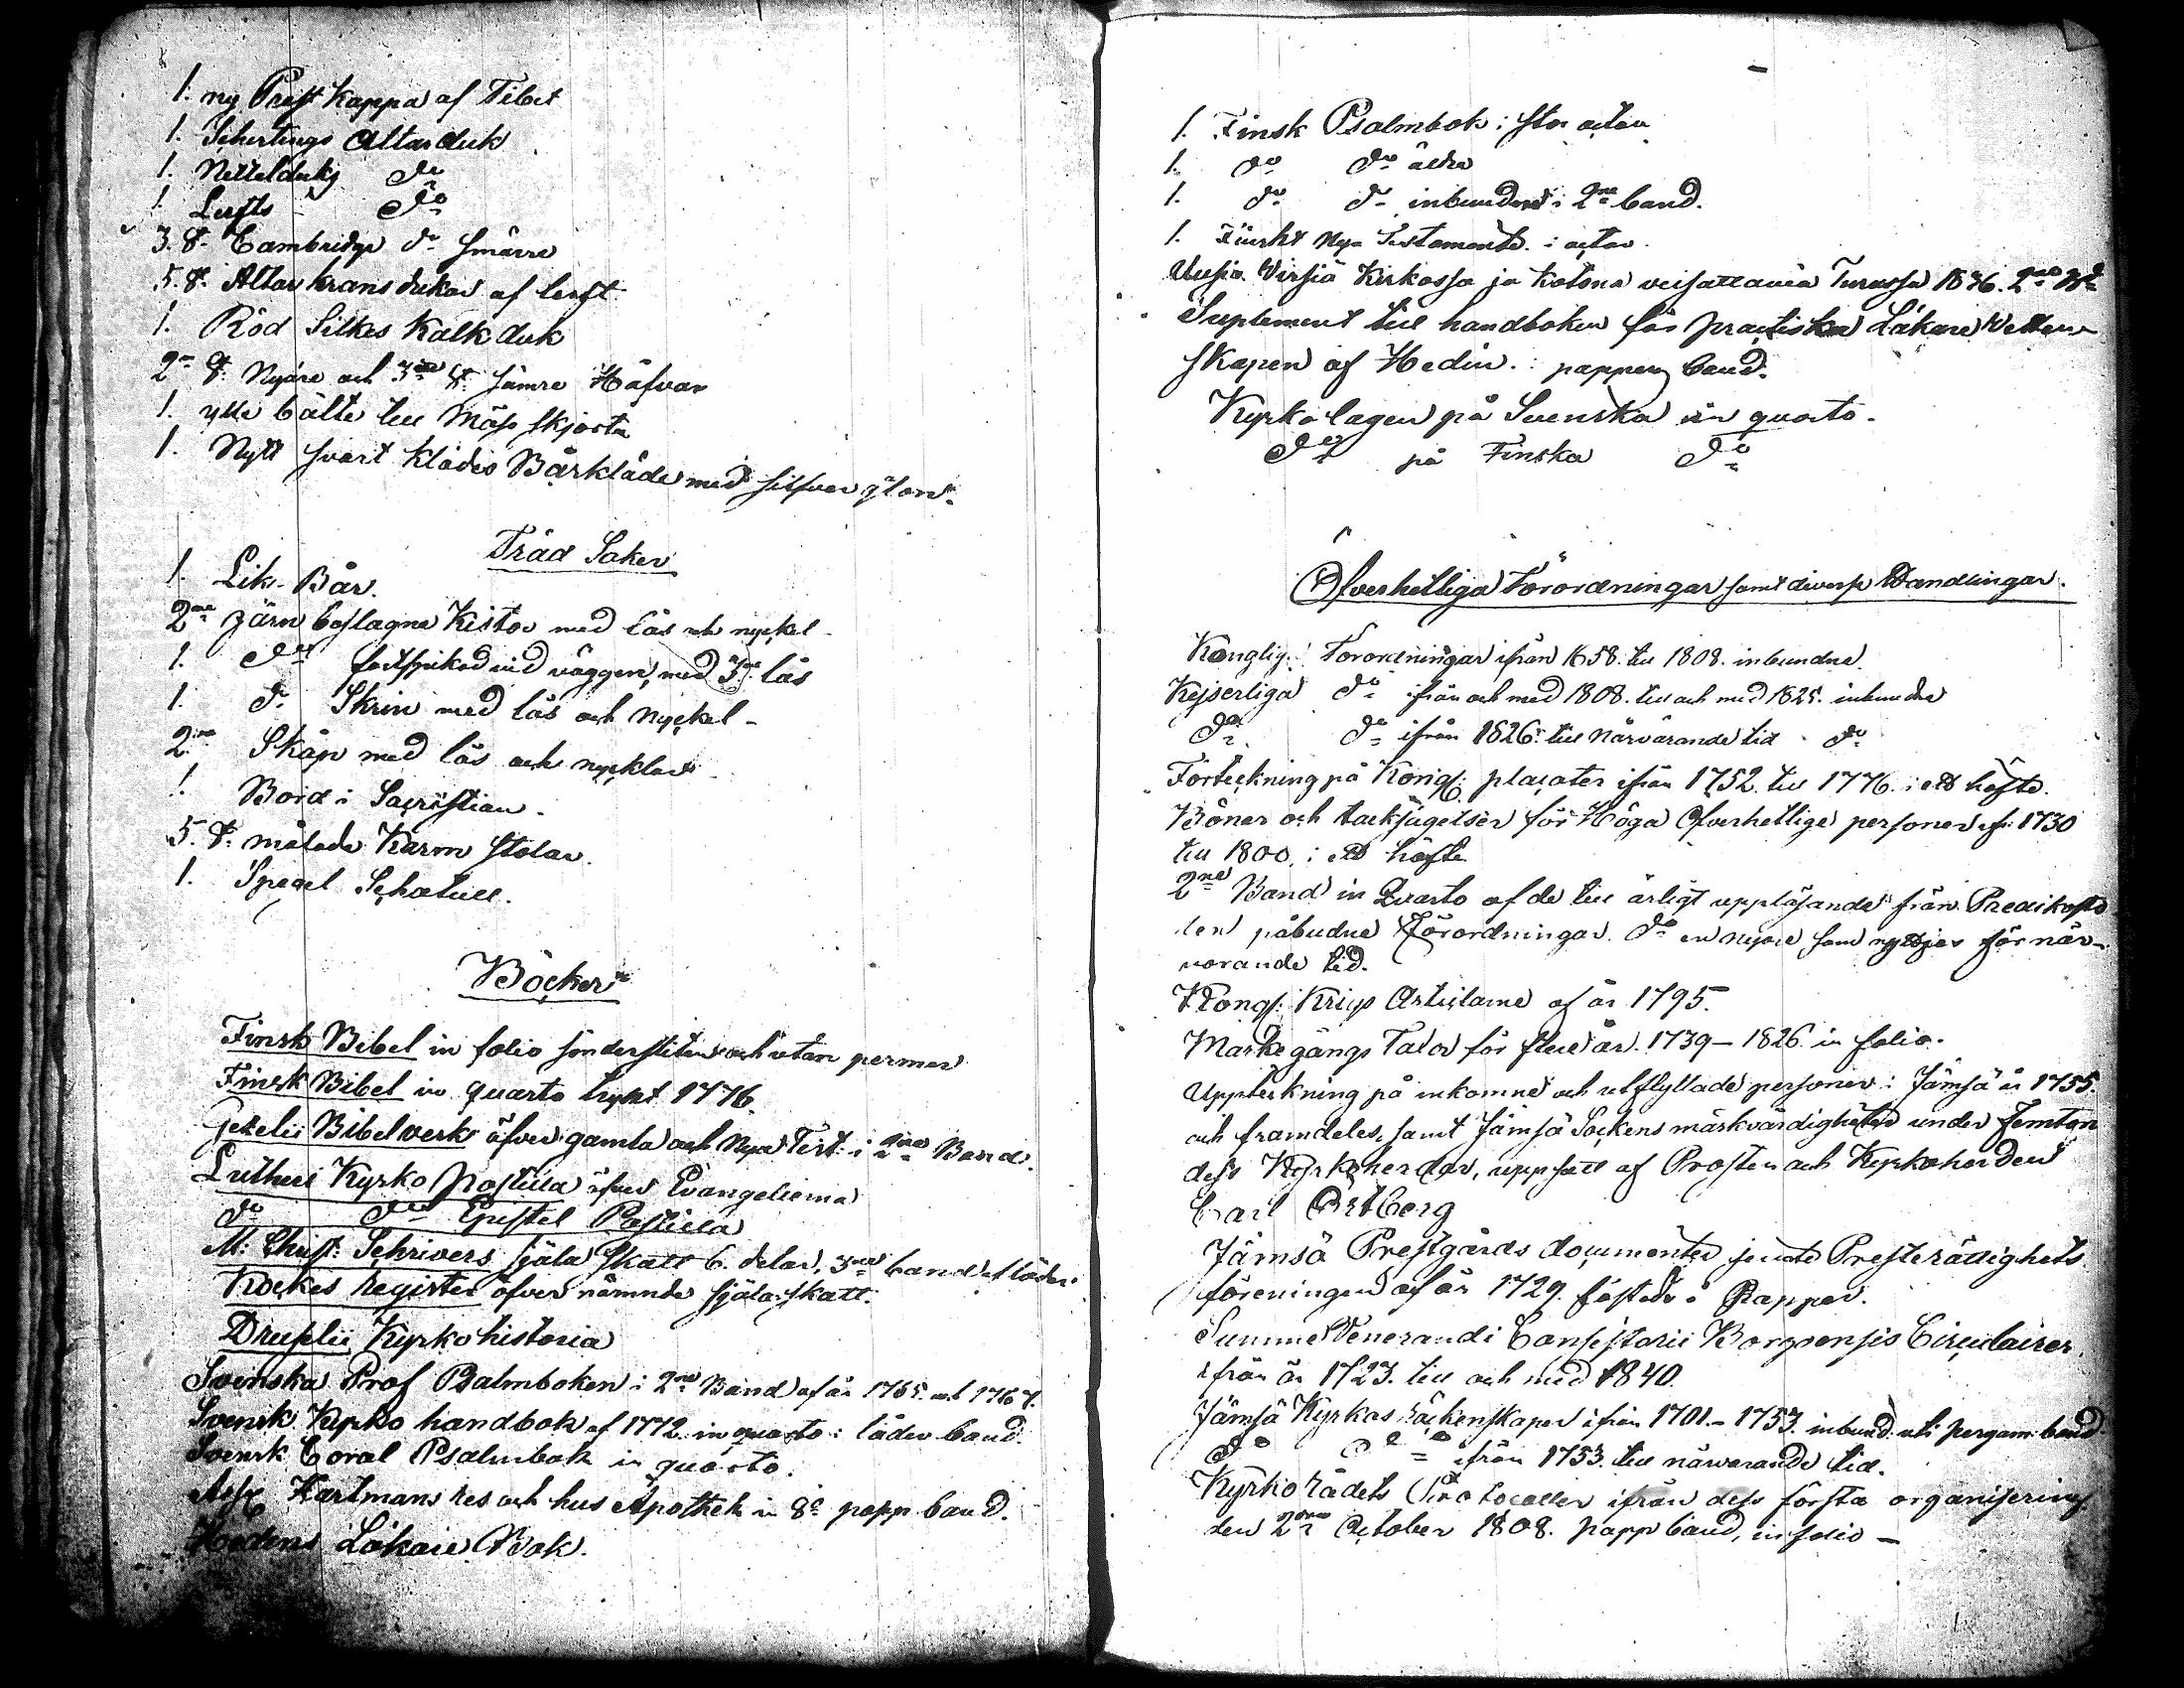 1. ny Prest Kappa af Tibet
1. Schertings Altarduk
1. Nettelduks do
1. Lerfts do
3. st. Cambridge do smärre
5. st. Altar krans dukar af lerft
1. Röd Silkes Kalk duk
2ne st. Nyare och 3ne st. sämre Håfvar
1. ylle bälte till Mäss skjorta
1. Nytt svart klädes Bårkläde med silfver galon.
Träd Saker
1. Lik-Bår.
2ne Järn beslagne Kistor med lås och nyckel
1. do fastspikad vid väggen, med 3ne lås
1. do Skrin med lås och Nyckel
2ne Skåp med lås och nycklar
1. Bord i Sacristian.
5. st. målade Karm stolar.
1. Spegel Schatull.
Böcker
Finsk Bibel in folio söndersliten och utan permar
Finsk Bibel in quarto tryckt 1776.
Gezelii Bibelverk öfver gamla och Nya Test: i 2ne Band.
Lutheri Kyrko Postilla öfver Evangelierna
do do Epistel Postilla
M: Christ: Schrivers Själa Skatt 6. delar, 3ne band af läder.
Kockes Register öfver nämnde själaskatt.
Druplii Kyrko historia
Svenska Prof Psalmboken i 2ne Band af år 1765. och 1767.
Svensk Kyrko handbok af 1772. in quarto i läder band.
Svensk Coral Psalmbok in quarto.
Hartmans Res och hus Apothek in 8o papp band.
Hedins Läkare Bok.
1. Finsk Psalmbok i stor octav
1. do do äldre
1. do do inbunden i 2ne band.
1. Finskt Nya Testamente i octav.
Uusia Virsiä Kirkossa ja Kotona veisattavia Turussa 1836. 2ne
Suplement till handboken för practiska Läkare Vetten
skapen af Hedin. i pappers band.
Kyrko lagen på Svenska in quarto.
do på Finska do
Öfverhetliga Förordningar samt diverse Handlingar.
Konglig. Förordningar ifrån 1658. till 1808. inbundne.
Kejserliga do ifrån och med 1808. till och med 1825. inbundne
do do ifrån 1826. till närvarande tid do
Förteckning på Kongl: placater ifrån 1752. till 1776. i ett häfte.
Böner och tacksägelser för Höga Öfverhetlige personer ifr. 1730
till 1800. i ett häfte
2ne Band in Quarto af de till årligt uppläsande från Predikosto
len påbudne Förordningar. do en nyare som nyttjas för när-
varande tid.
Kongl: Krigs Articlarne af år 1795.
Markegångs Taxor för flere år. 1739-1826 in folio.
Uppteckning på inkomne och utflyttade personer i Jämsä år 1755.
och framdeles, samt Jämsä Sockens märkvärdigheter under femton
dess Kyrkoherdar, uppsatt af Prosten och Kyrkoherden
Carl Ortberg
Jämsä Prestgårds documenter jemte Presterättighets
föreningen af år 1729. fästade i Papper.
Summe Venerandi Consistorii Borgoensis Circulairer
ifrån år 1723. till och med 1840.
Jämsä Kyrkas räkenskaper ifrån 1701.-1753. inbund. uti pergam: band
do do ifrån 1753. till närvarande tid.
Kyrko Rådets Protocoller ifrån dess första organisering
den 2dra October 1808. papp band, in folio —